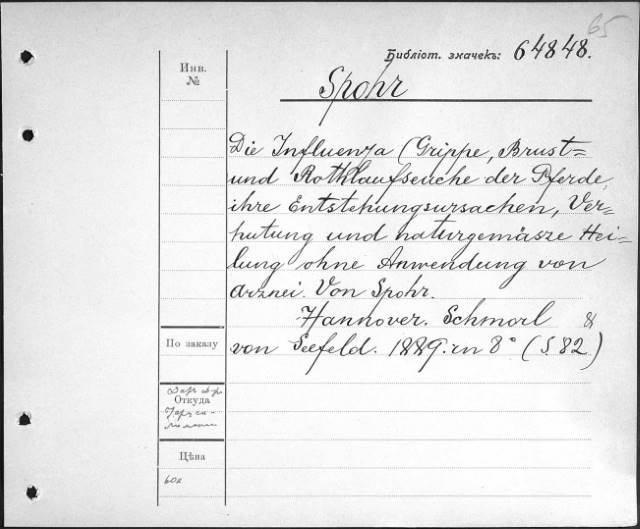 65
Библіот. значекъ: 64848.
Инв.
№
Spohr
Die Influenza (Grippe, Brust=
und Rothlaufseuche der Pferde,
ihre Entstehungsursachen, Ver=
hutung und naturgemäsze Hei-
lung ohne Anwendung von
Arznei. Von Spohr.
Hannover. Schmorl &
von Seefeld. 1889. in 8° (S 82)
По заказу
Откуда
Цѣна
60к